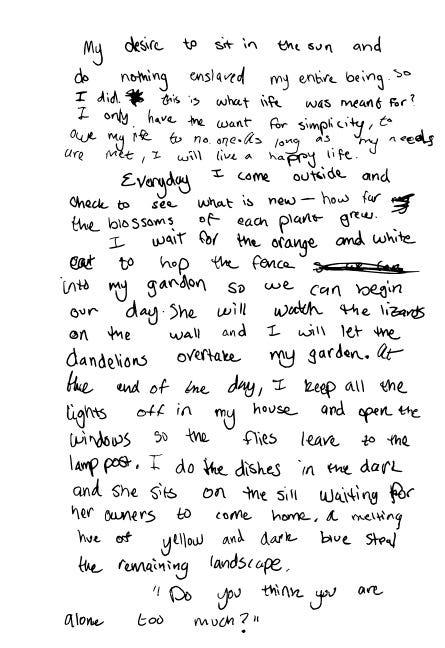 My desire to sit in the sun and
do nothing enslaved my entire being. So
I did. this is what life was meant for?
I only have the want for simplicity, to
owe my life to no one. As long as my needs
are met, I will live a happy life.
Everyday I come outside and
check to see what is new – how far
the blossoms of each plant grew.
I wait for the orange and white
cat to hop the fence
into my garden so we can begin
our day. She will watch the lizards
on the wall and I will let the
dandelions overtake my garden. At
the end of the day, I keep all the
lights off in my house and open the
windows so the flies leave to the
lamp post. I do the dishes in the dark
and she sits on the sill waiting for
her owners to come home. A melting
hue of yellow and dark blue steal
the remaining landscape.
"Do you think you are
alone too much?"